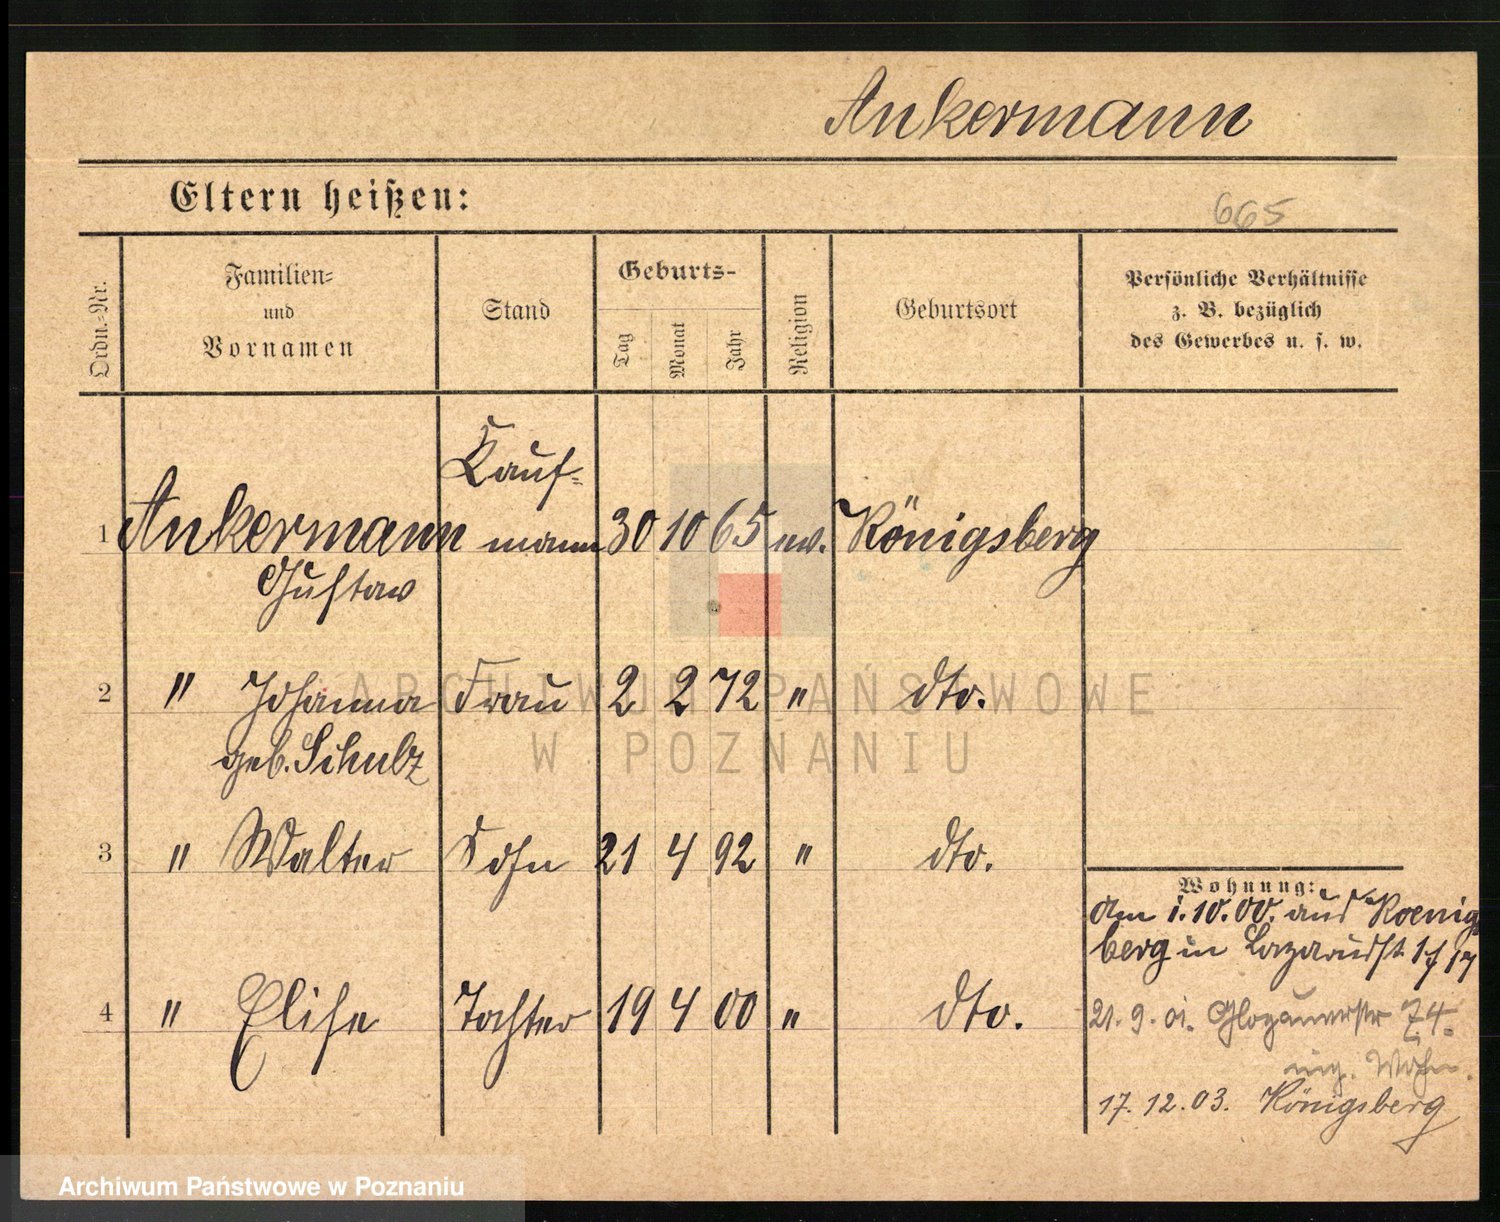 Ankermann
Eltern heißen:
665
Ordn.-Nr.
Familien-
und
Vornamen
Stand
Geburts-
Tag
Monat
Jahr
Religion
Geburtsort
Persönliche Verhältnisse
z. B. bezüglich
des Gewerbes u. s. w.
Kauf-
1 Ankermann mann 30 10 65 ev. Königsberg
Gustav
2 " Johanna Frau 2 2 72 " dto.
geb. Schulz
3 " Walter Sohn 21 4 92 " dto.
Wohnung:
Am 1.10.00. aus Koenigs
berg in Lazarusst.
4 " Elise Tochter 19 4 00 " dto.
21.9.01. Glogauerstr 74.
eig. Wohn.
17.12.03. Königsberg
ARCHIWUM PAŃSTWOWE
W POZNANIU
Archiwum Państwowe w Poznaniu